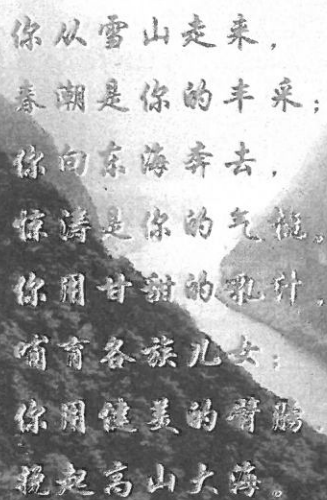 你从雪山走来,
春潮是你的丰采;
你向东海奔去,
惊涛是你的气概。
你用甘甜的乳汁,
哺育各族儿女;
你用健美的臂膀
挽起高山大海。